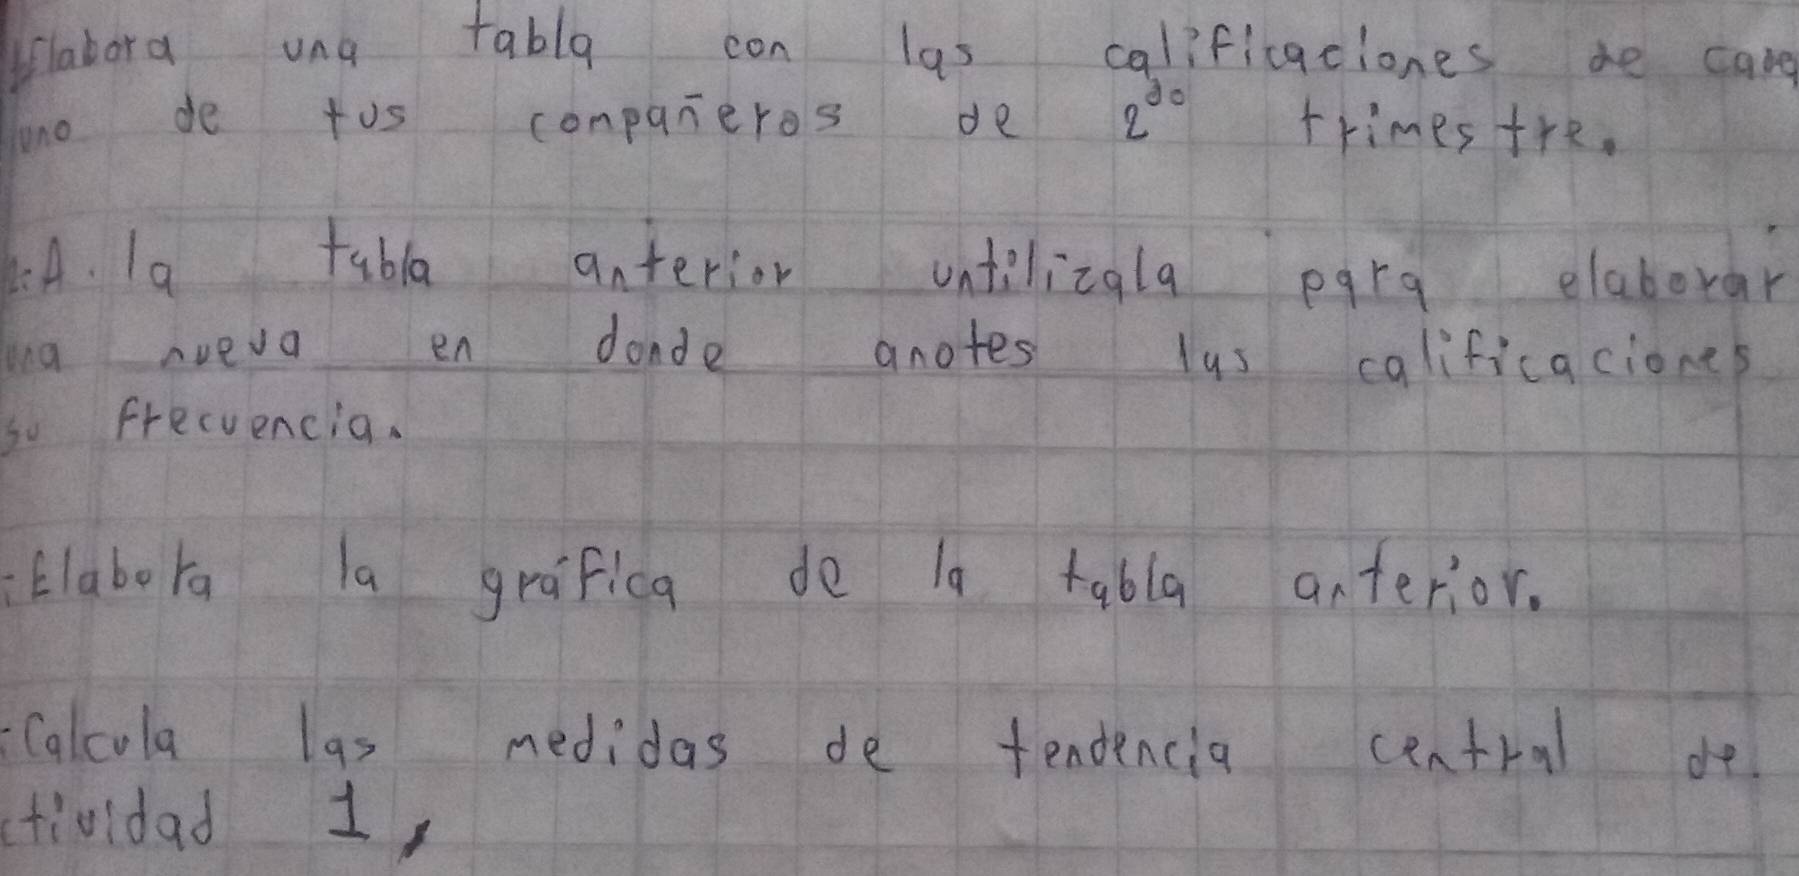 Elabora una tabla con las calificaciones de cada
uno de tus compañeros de 2do trimestre.
2:A. la tabla anterior untilizala para elaborar
una nueva en donde anotes las calificaciones
su frecuencia.
:Elabora la gráfica de la tabla anterior.
:Calcula las medidas de tendencia central de
ctividad 1,